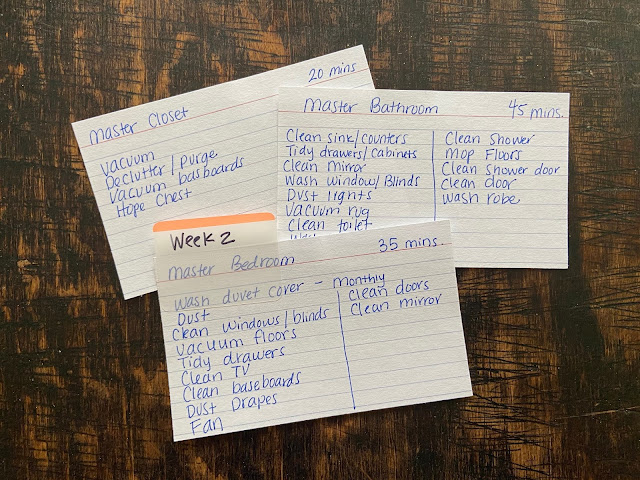 20 mins
Master Closet
Vacuum
Declutter/purge
Vacuum basboards
Hope Chest
Master Bathroom 45 mins.
Clean sink/counters
Tidy drawers/cabinets
Clean mirror
Wash window/Blinds
Dust lights
Vacuum rug
Clean toilet
Clean Shower
Mop Floors
Clean Shower door
Clean door
Wash robe
Week 2
Master Bedroom 35 mins.
Wash duvet cover - monthly
Dust
Clean windows/blinds
Vacuum floors
Tidy drawers
Clean TV
Clean baseboards
Dust Drapes
Fan
Clean doors
Clean mirror